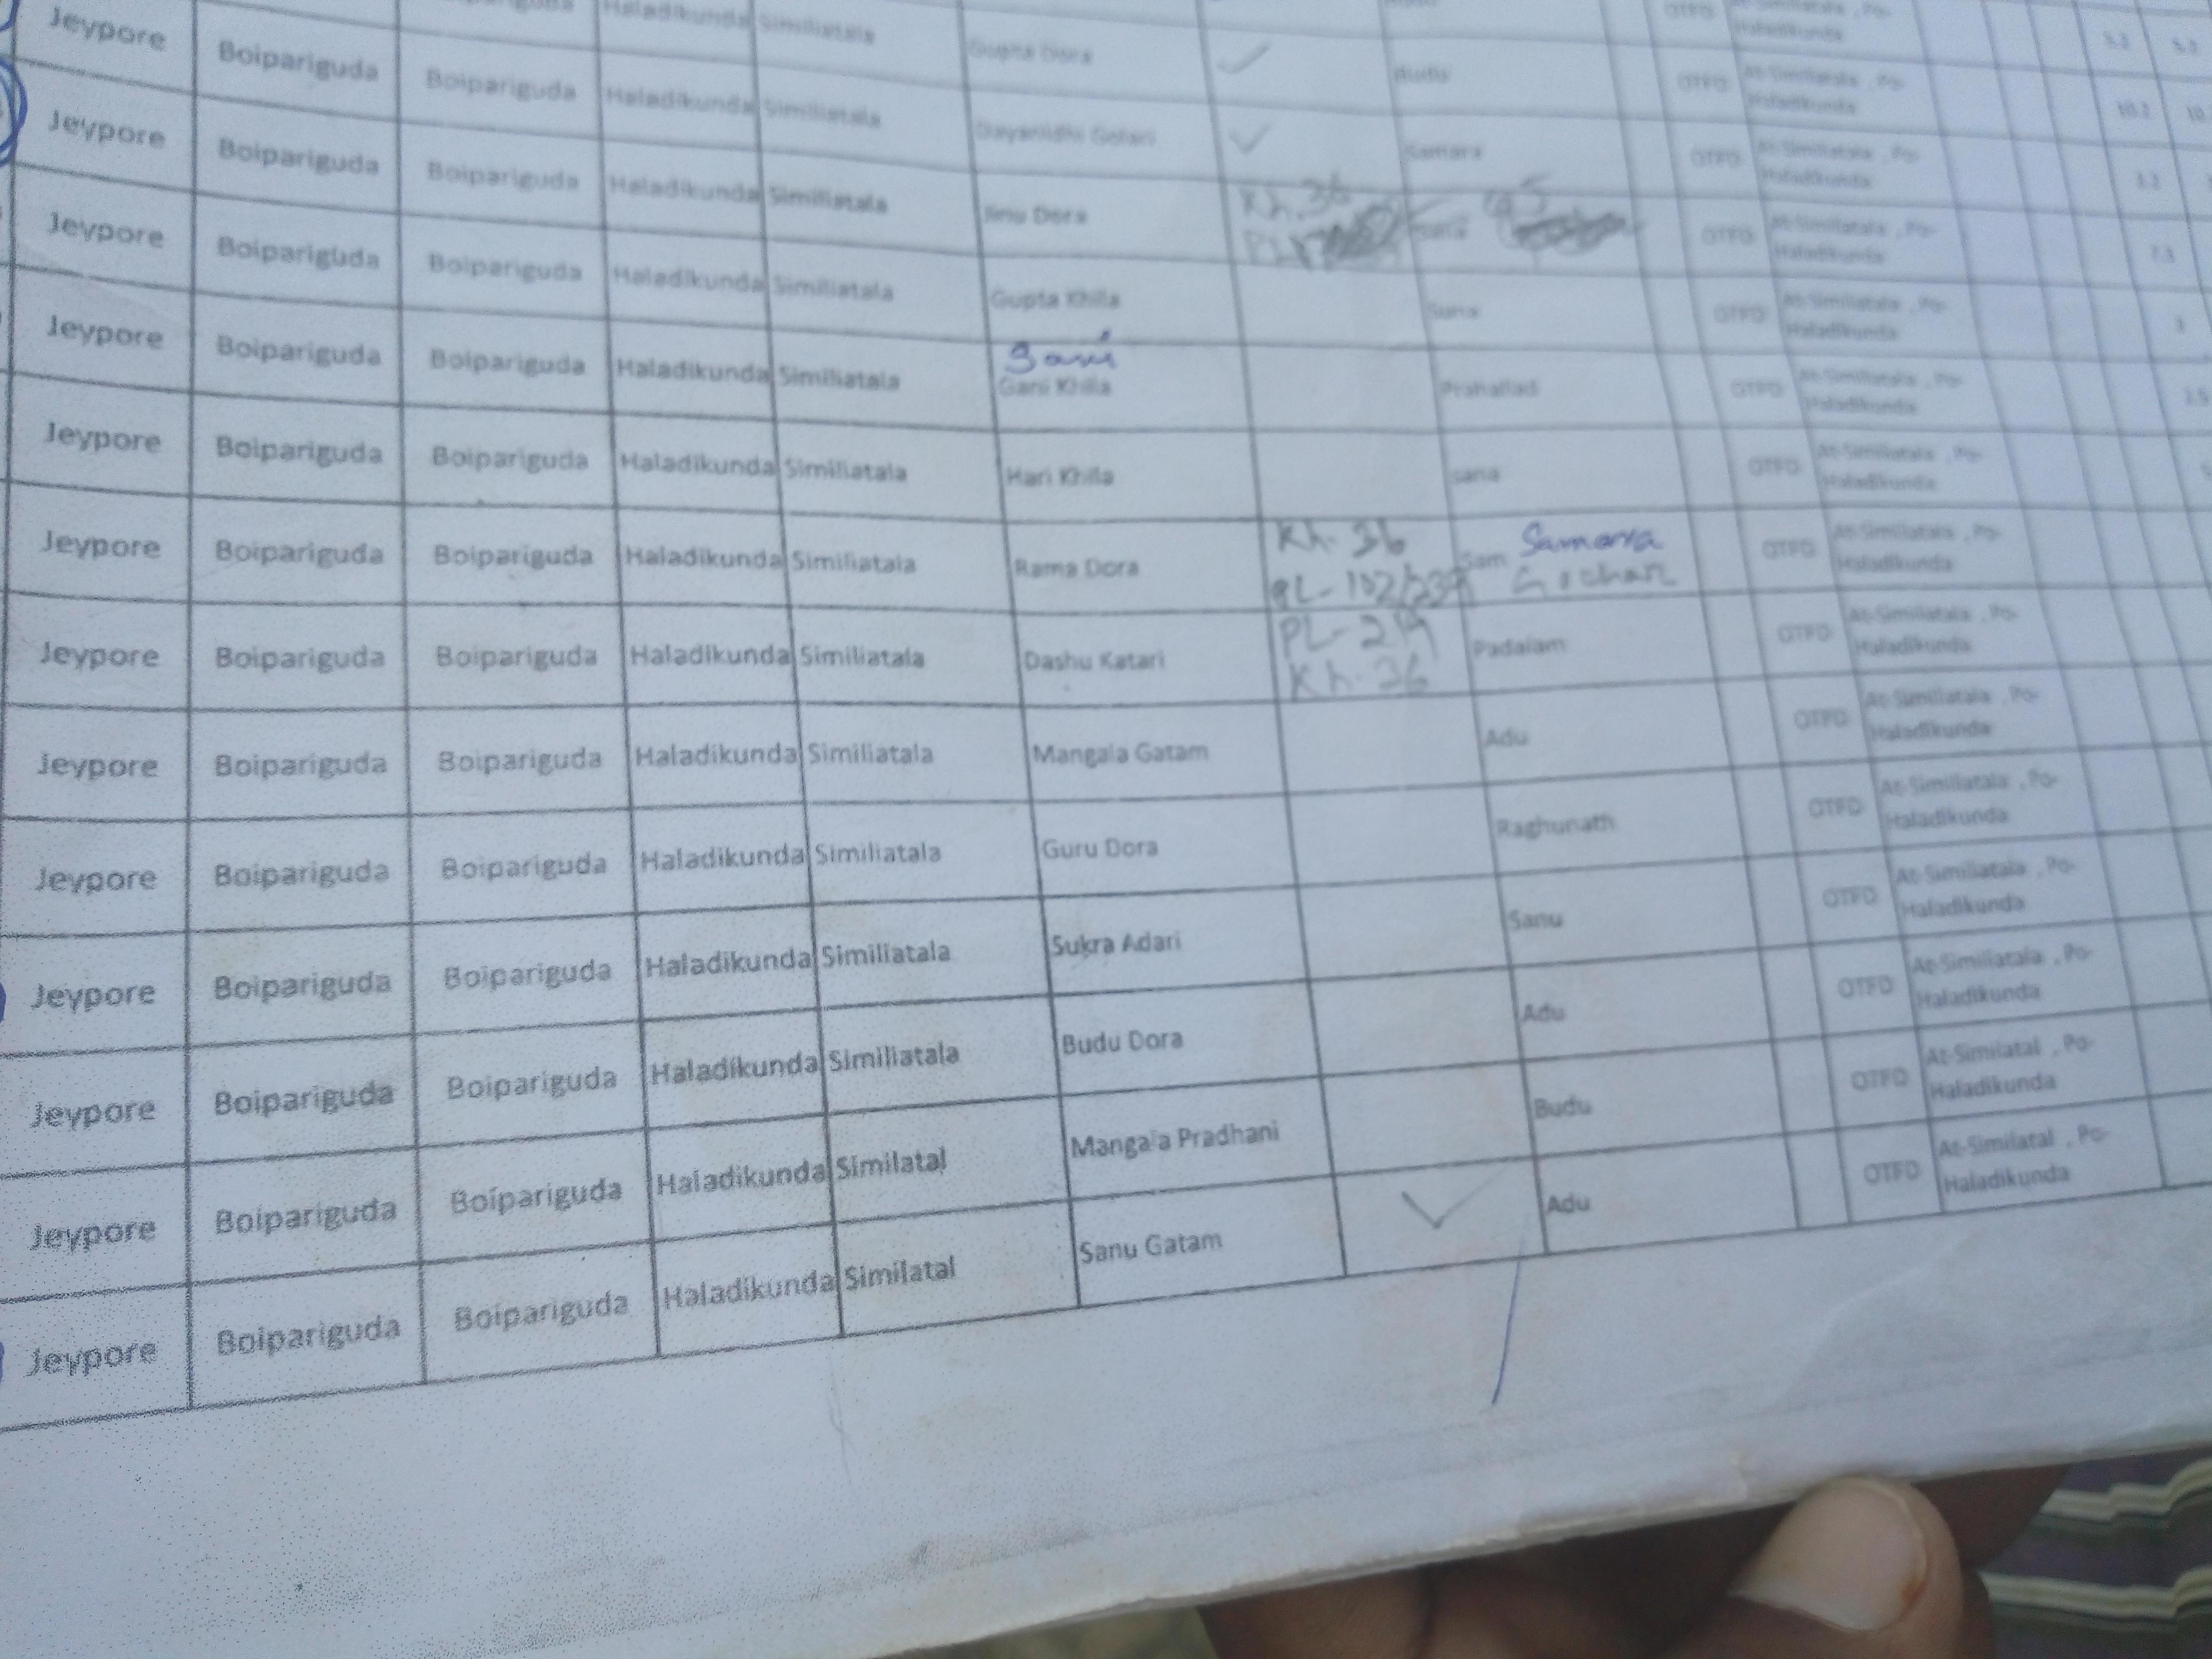 Haladikunda Similiatala
Jeypore Boipariguda Boipariguda Haladikunda Similiatala Gupta Dora Budu OTFD At-Similiatala , Po-
Haladikunda
Jeypore Boipariguda Boipariguda Haladikunda Similiatala Dayanidhi Golari Samara OTFD At-Similiatala , Po-
Haladikunda
Kh. 36
Jeypore Boipariguda Boipariguda Haladikunda Similiatala Dora OTFD At-Similiatala , Po-
Haladikunda
PL
Jeypore Boipariguda Boipariguda Haladikunda Similiatala Gupta Khilla OTFD At-Similiatala , Po-
Haladikunda
Gani
Jeypore Boipariguda Boipariguda Haladikunda Similiatala Gani Khilla Prahallad OTFD At-Similiatala , Po-
Haladikunda
Jeypore Boipariguda Boipariguda Haladikunda Similiatala Hari Khilla sana OTFD At-Similiatala , Po-
Haladikunda
Kh. 36 Samara
Jeypore Boipariguda Boipariguda Haladikunda Similiatala Rama Dora Sam OTFD At-Similiatala , Po-
Haladikunda
PL-
Jeypore Boipariguda Boipariguda Haladikunda Similiatala Dashu Katari Padalam OTFD At-Similiatala , Po-
Haladikunda
Kh. 36
Jeypore Boipariguda Boipariguda Haladikunda Similiatala Mangala Gatam Adu OTFD At-Similiatala , Po-
Haladikunda
Jeypore Boipariguda Boipariguda Haladikunda Similiatala Guru Dora Raghunath OTFD At-Similiatala , Po-
Haladikunda
Jeypore Boipariguda Boipariguda Haladikunda Similiatala Sukra Adari Sanu OTFD At-Similiatala , Po-
Haladikunda
Jeypore Boipariguda Boipariguda Haladikunda Similiatala Budu Dora Adu OTFD At-Similiatala , Po-
Haladikunda
Jeypore Boipariguda Boipariguda Haladikunda Similatal Mangala Pradhani Budu OTFD At-Similatal , Po-
Haladikunda
Jeypore Boipariguda Boipariguda Haladikunda Similatal Sanu Gatam Adu OTFD At-Similatal , Po-
Haladikunda